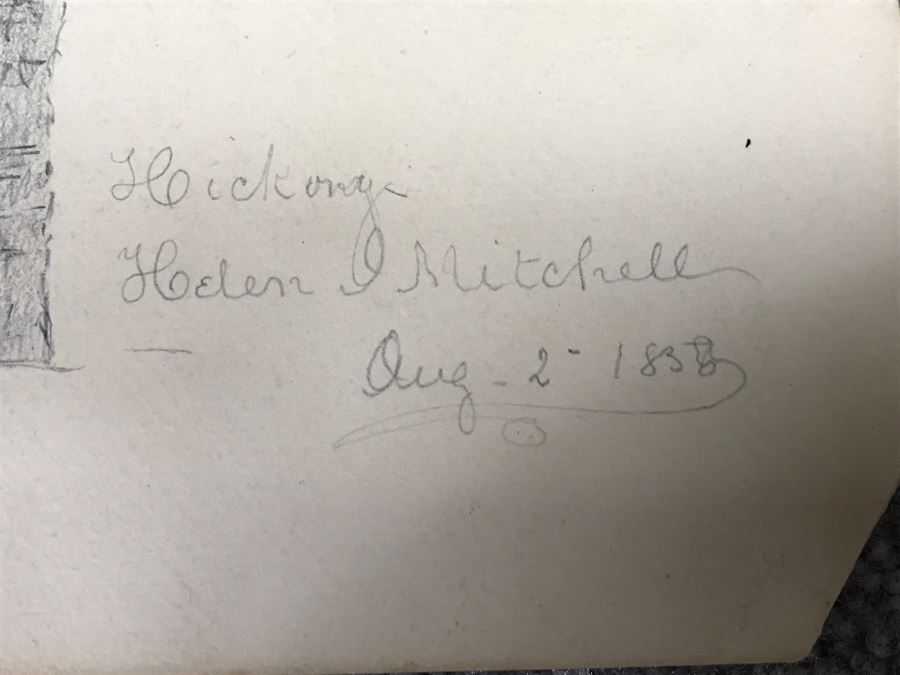 Hickory
Helen I Mitchell
Aug - 2 - 1888